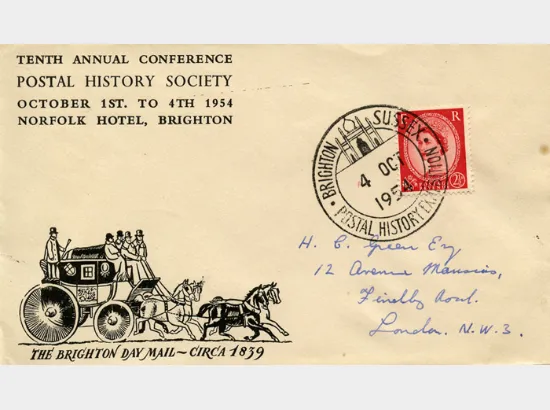 TENTH ANNUAL CONFERENCE
POSTAL HISTORY SOCIETY
OCTOBER 1ST. TO 4TH 1954
NORFOLK HOTEL, BRIGHTON
BRIGHTON SUSSEX
4 OCT
1954
POSTAL HISTORY
R
2½
H. C. Green Esq
12 Avenue Mansions,
Finchley Road.
London. N.W.3.
THE BRIGHTON DAY MAIL ~ CIRCA 1839